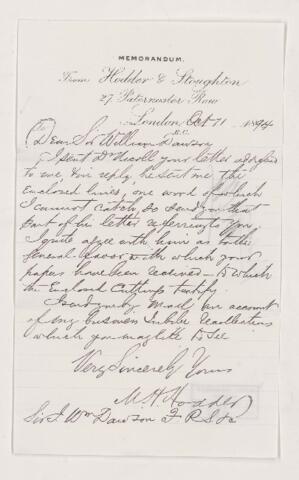 MEMORANDUM.
From Hodder & Stoughton
27, Paternoster Row
London Oct 11 1894
E.C.
Dear Sir William Dawson
I sent Dr Nicoll your letter
to me, in reply he sent me the
Enclosed lines, one word of which
I cannot catch, so send you that
part of his letter referring to you
I quite agree with him as to the
general favor with which your
papers have been received – to which
the Enclosed Cuttings testify.
I send you by Mail, an account
of my business Jubilee Recollections
which you might like to see
Very Sincerely Yours
M. H. Hodder
Sir J Wm Dawson F.R.S &c